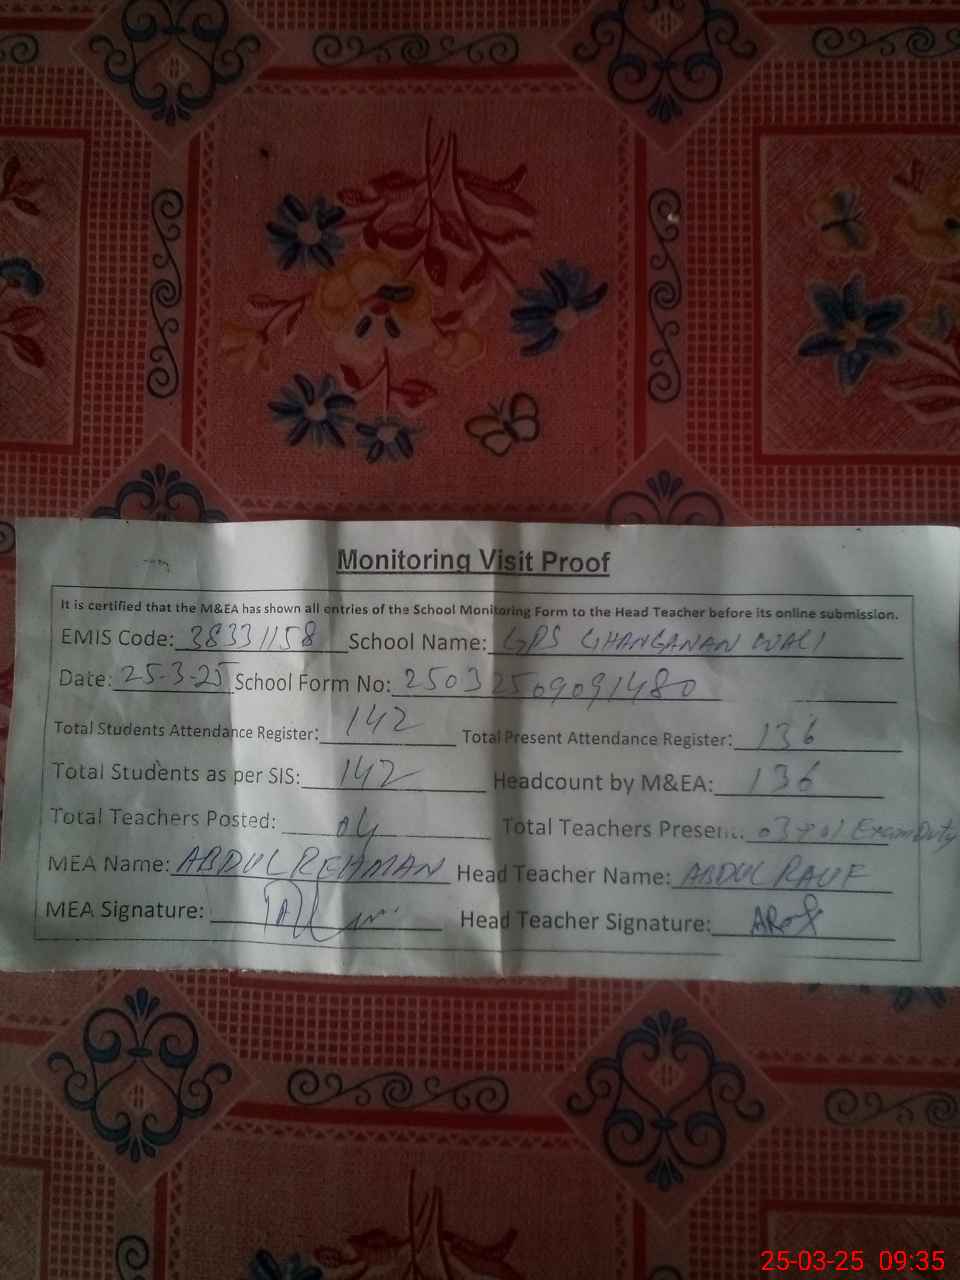 Monitoring Visit Proof
It is certified that the M&EA has shown all entries of the School Monitoring Form to the Head Teacher before its online submission.
EMIS Code: 38331158 School Name: GPS GHANGANAN WALI
Date: 25-3-25 School Form No: 25032509091480
Total Students Attendance Register: 142 Total Present Attendance Register: 136
Total Students as per SIS: 142 Headcount by M&EA: 136
Total Teachers Posted: 04 Total Teachers Present: 03+01 Exam Duty
MEA Name: ABDUL REHMAN Head Teacher Name: ABDUL RAUF
MEA Signature: Head Teacher Signature: ARauf
25-03-25 09:35